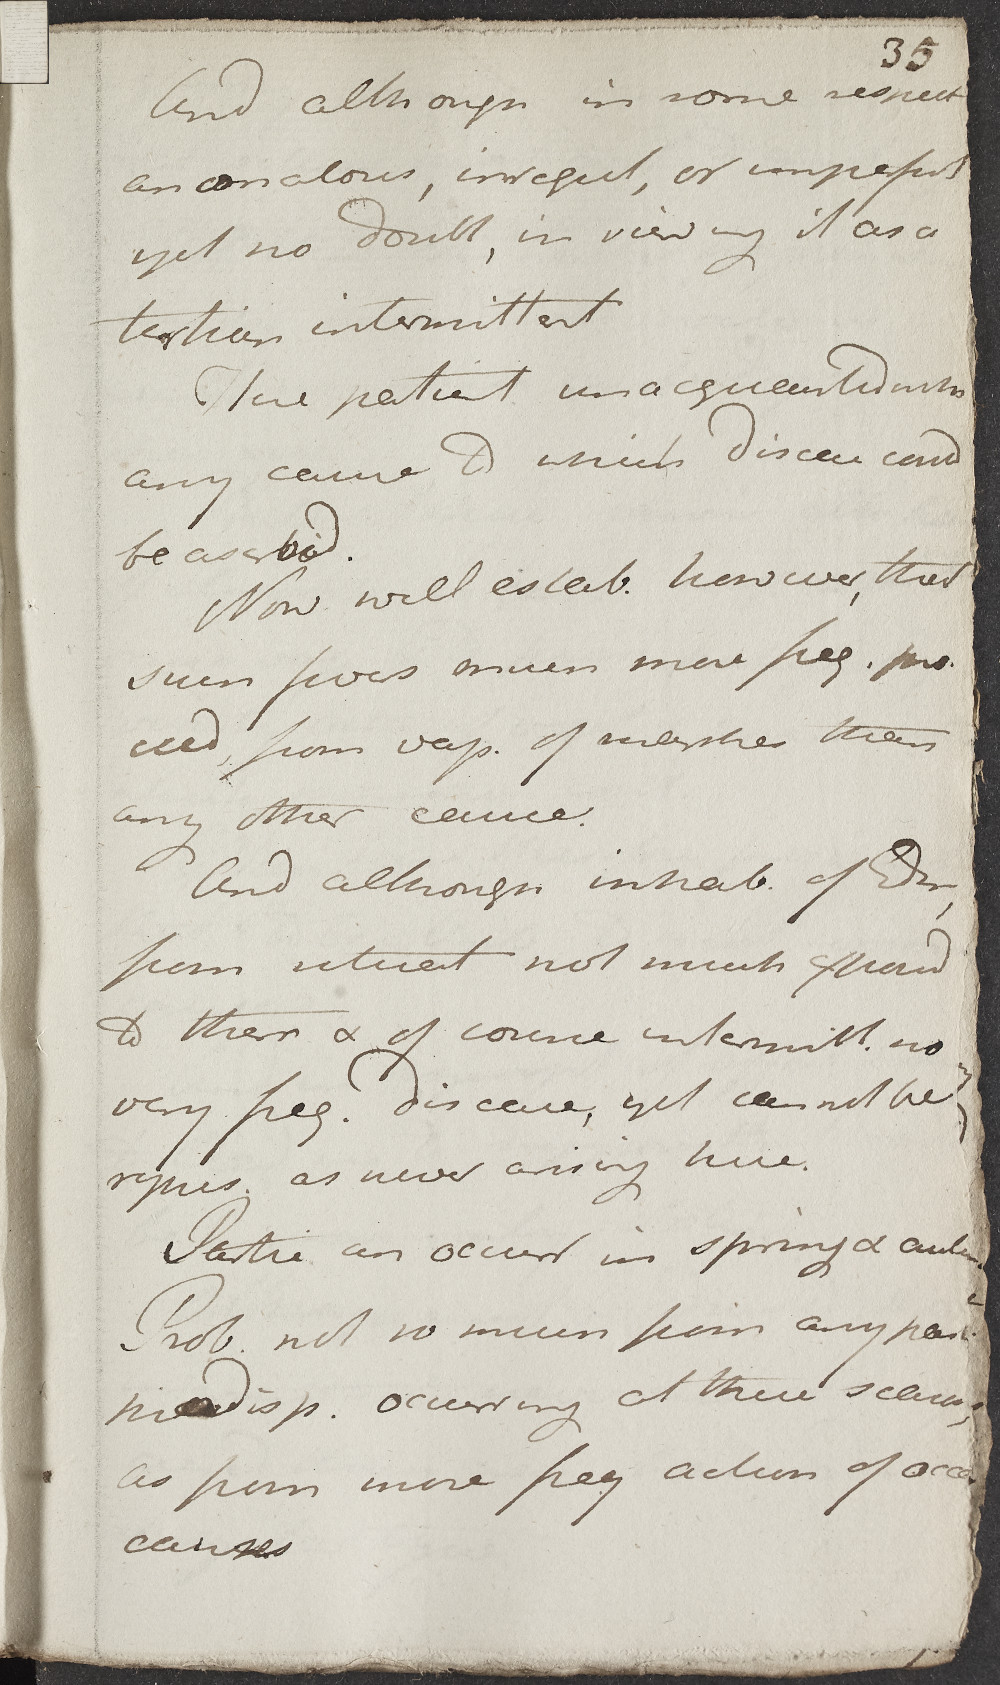 35
And although in some respect
anomalous, irregul, or imperfect
yet no doubt, in viewing it as a
tertian intermittent
Here patient unacquainted with
any cause to which disease could
be ascribd.
Now well estab. however, that
such fevers much more freq. pro
ceed, from vap. of marshes than
any other cause.
And although inhab. of Edin,
from situat not much exposed
to them & of course intermitt. no
very freq. disease, yet cannot be
repres. as never arising here.
Partic an occurr in spring & autum
Prob. not so much from any part
predisp. occurring at these seasons,
as from more freq action of occa
causes